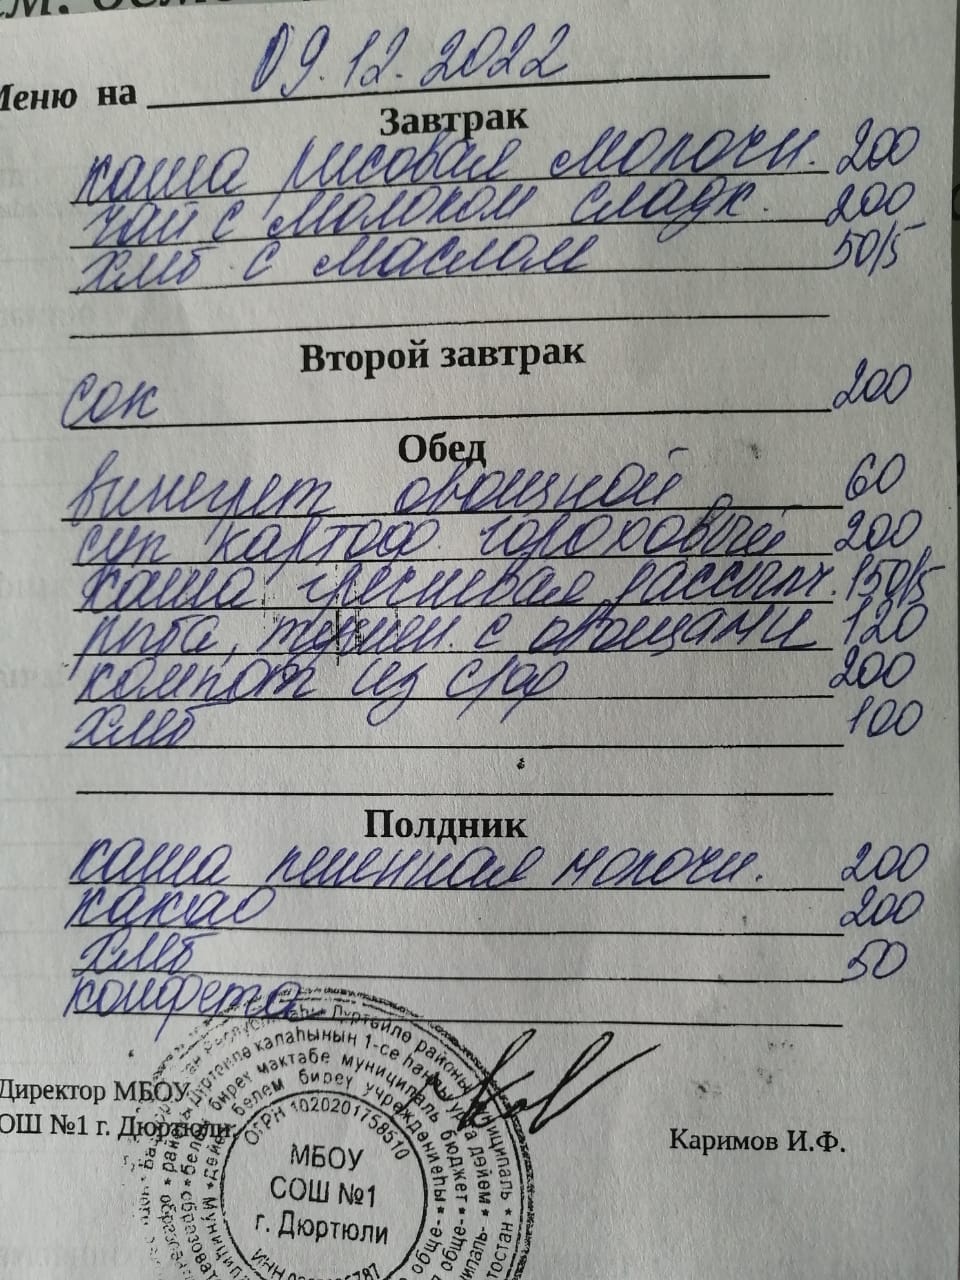 Меню на 09.12.2022
Завтрак
каша рисовая молочн. 200
чай с молоком сладк. 200
хлеб с маслом 50/5
Второй завтрак
сок 200
Обед
винегрет овощной 60
суп картоф. гороховый 200
каша гречневая рассыпч. 150/5
рыба, тушен. с овощами 120
компот из с/ф 200
хлеб 100
Полдник
каша пшенная молочн. 200
какао 200
хлеб 50
конфета
Директор МБОУ
ОШ №1 г. Дюртюли
Каримов И.Ф.
ОГРН 1020201758510
МБОУ
СОШ №1
г. Дюртюли
ИНН